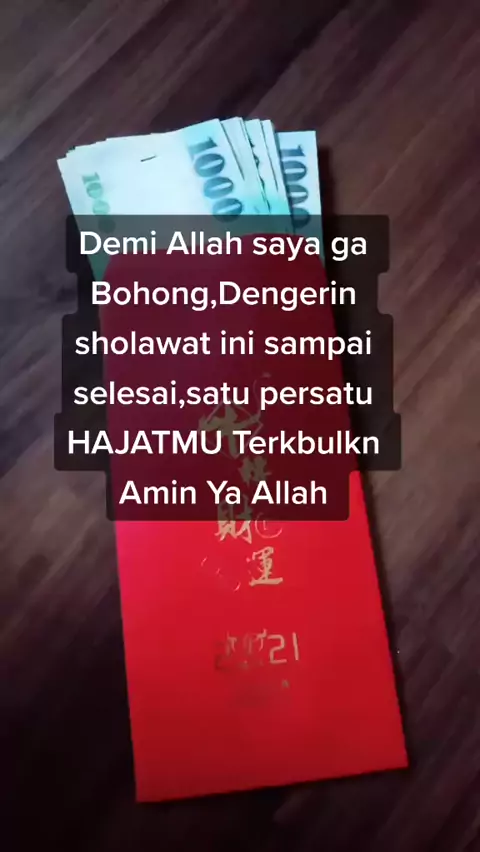 1000
1000
1000
Demi Allah saya ga
Bohong,Dengerin
sholawat ini sampai
selesai,satu persatu
HAJATMU Terkbulkn
Amin Ya Allah
財
運
21